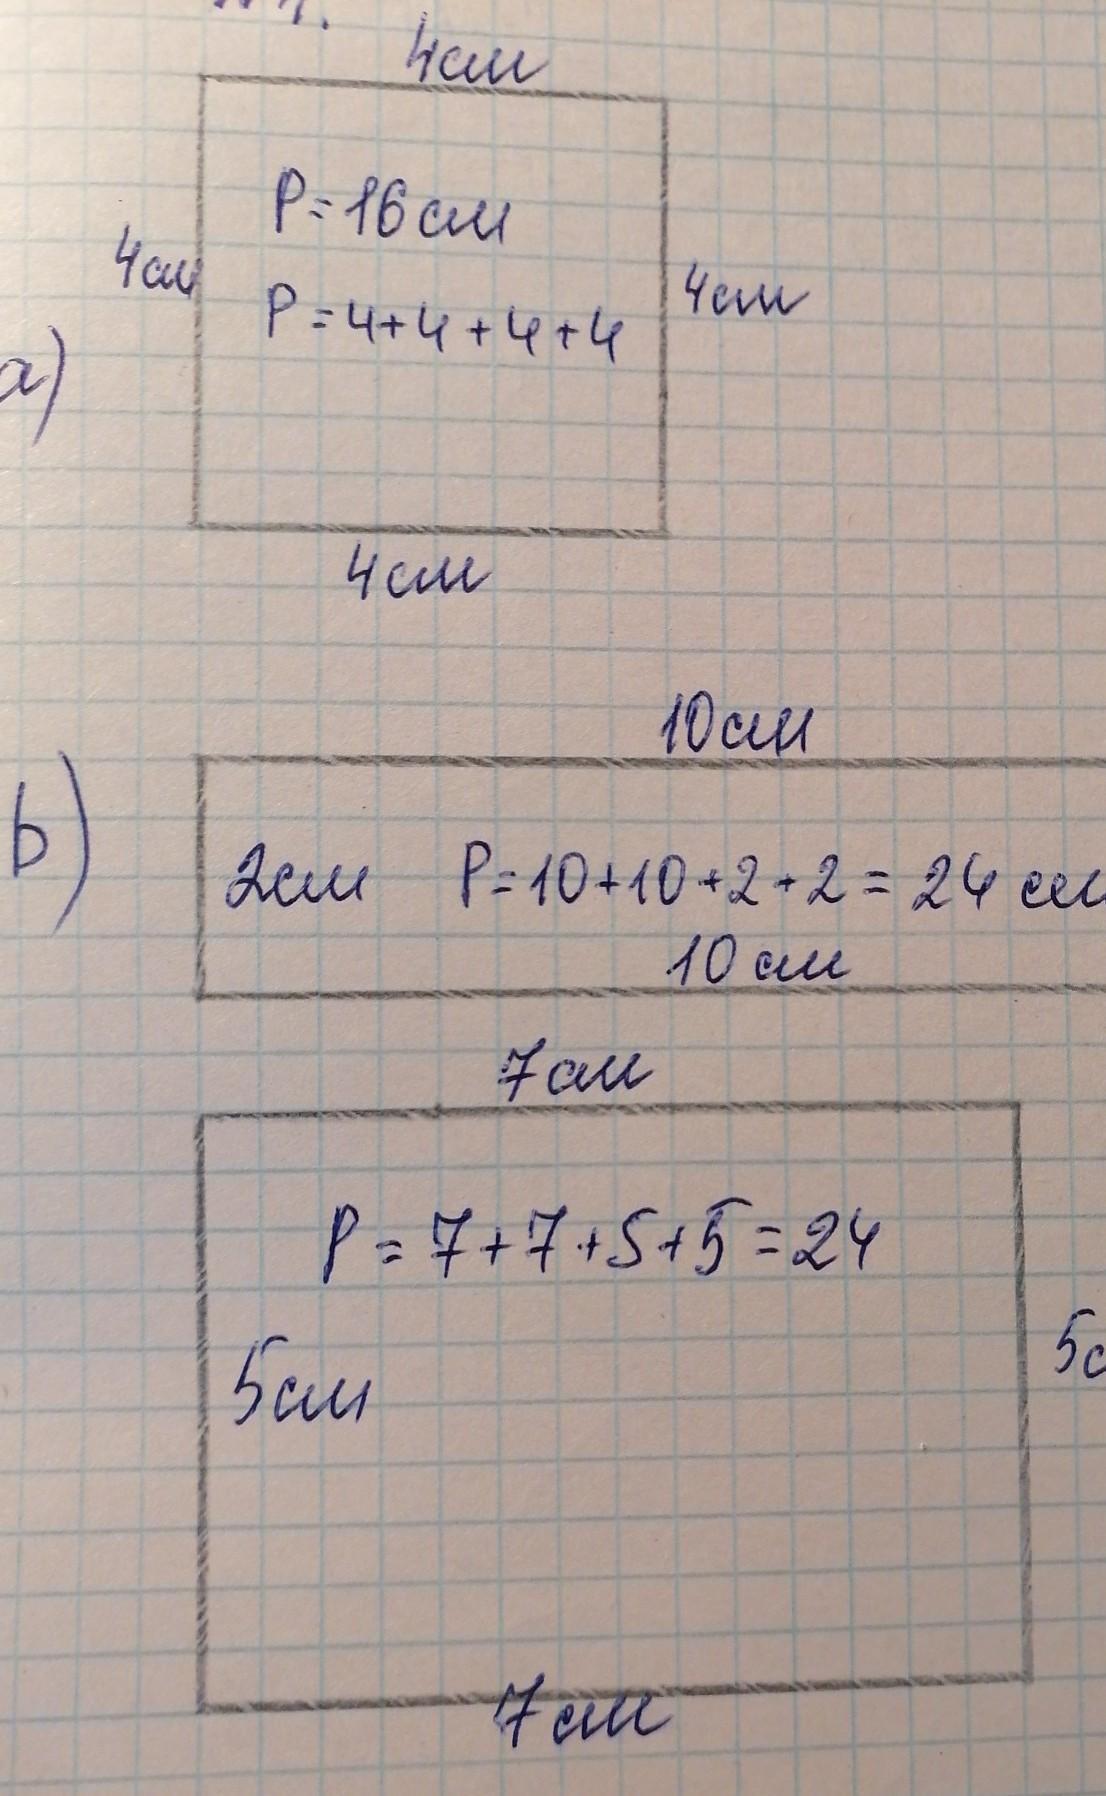 4см
P=16см
4см
4см
P=4+4+4+4
a)
4см
10см
b)
2см P=10+10+2+2=24 см
10см
7см
P=7+7+5+5=24
5см
7см